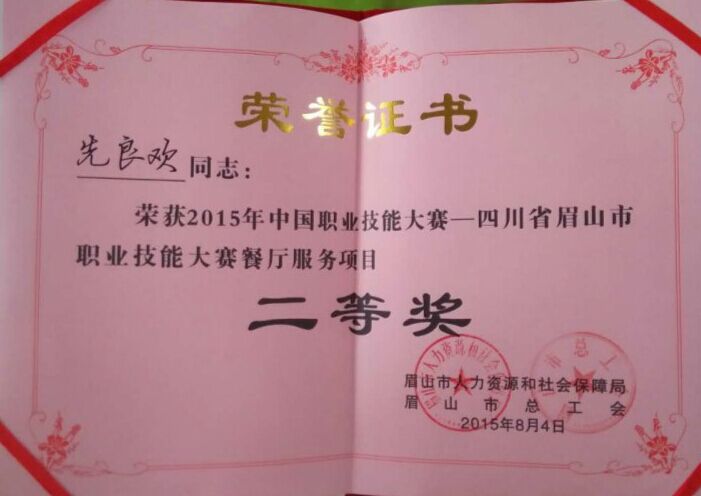 荣誉证书
先良欢 同志：
荣获2015年中国职业技能大赛—四川省眉山市
职业技能大赛餐厅服务项目
二等奖
眉山市人力资源和社会保障局
眉山市总工会
2015年8月4日